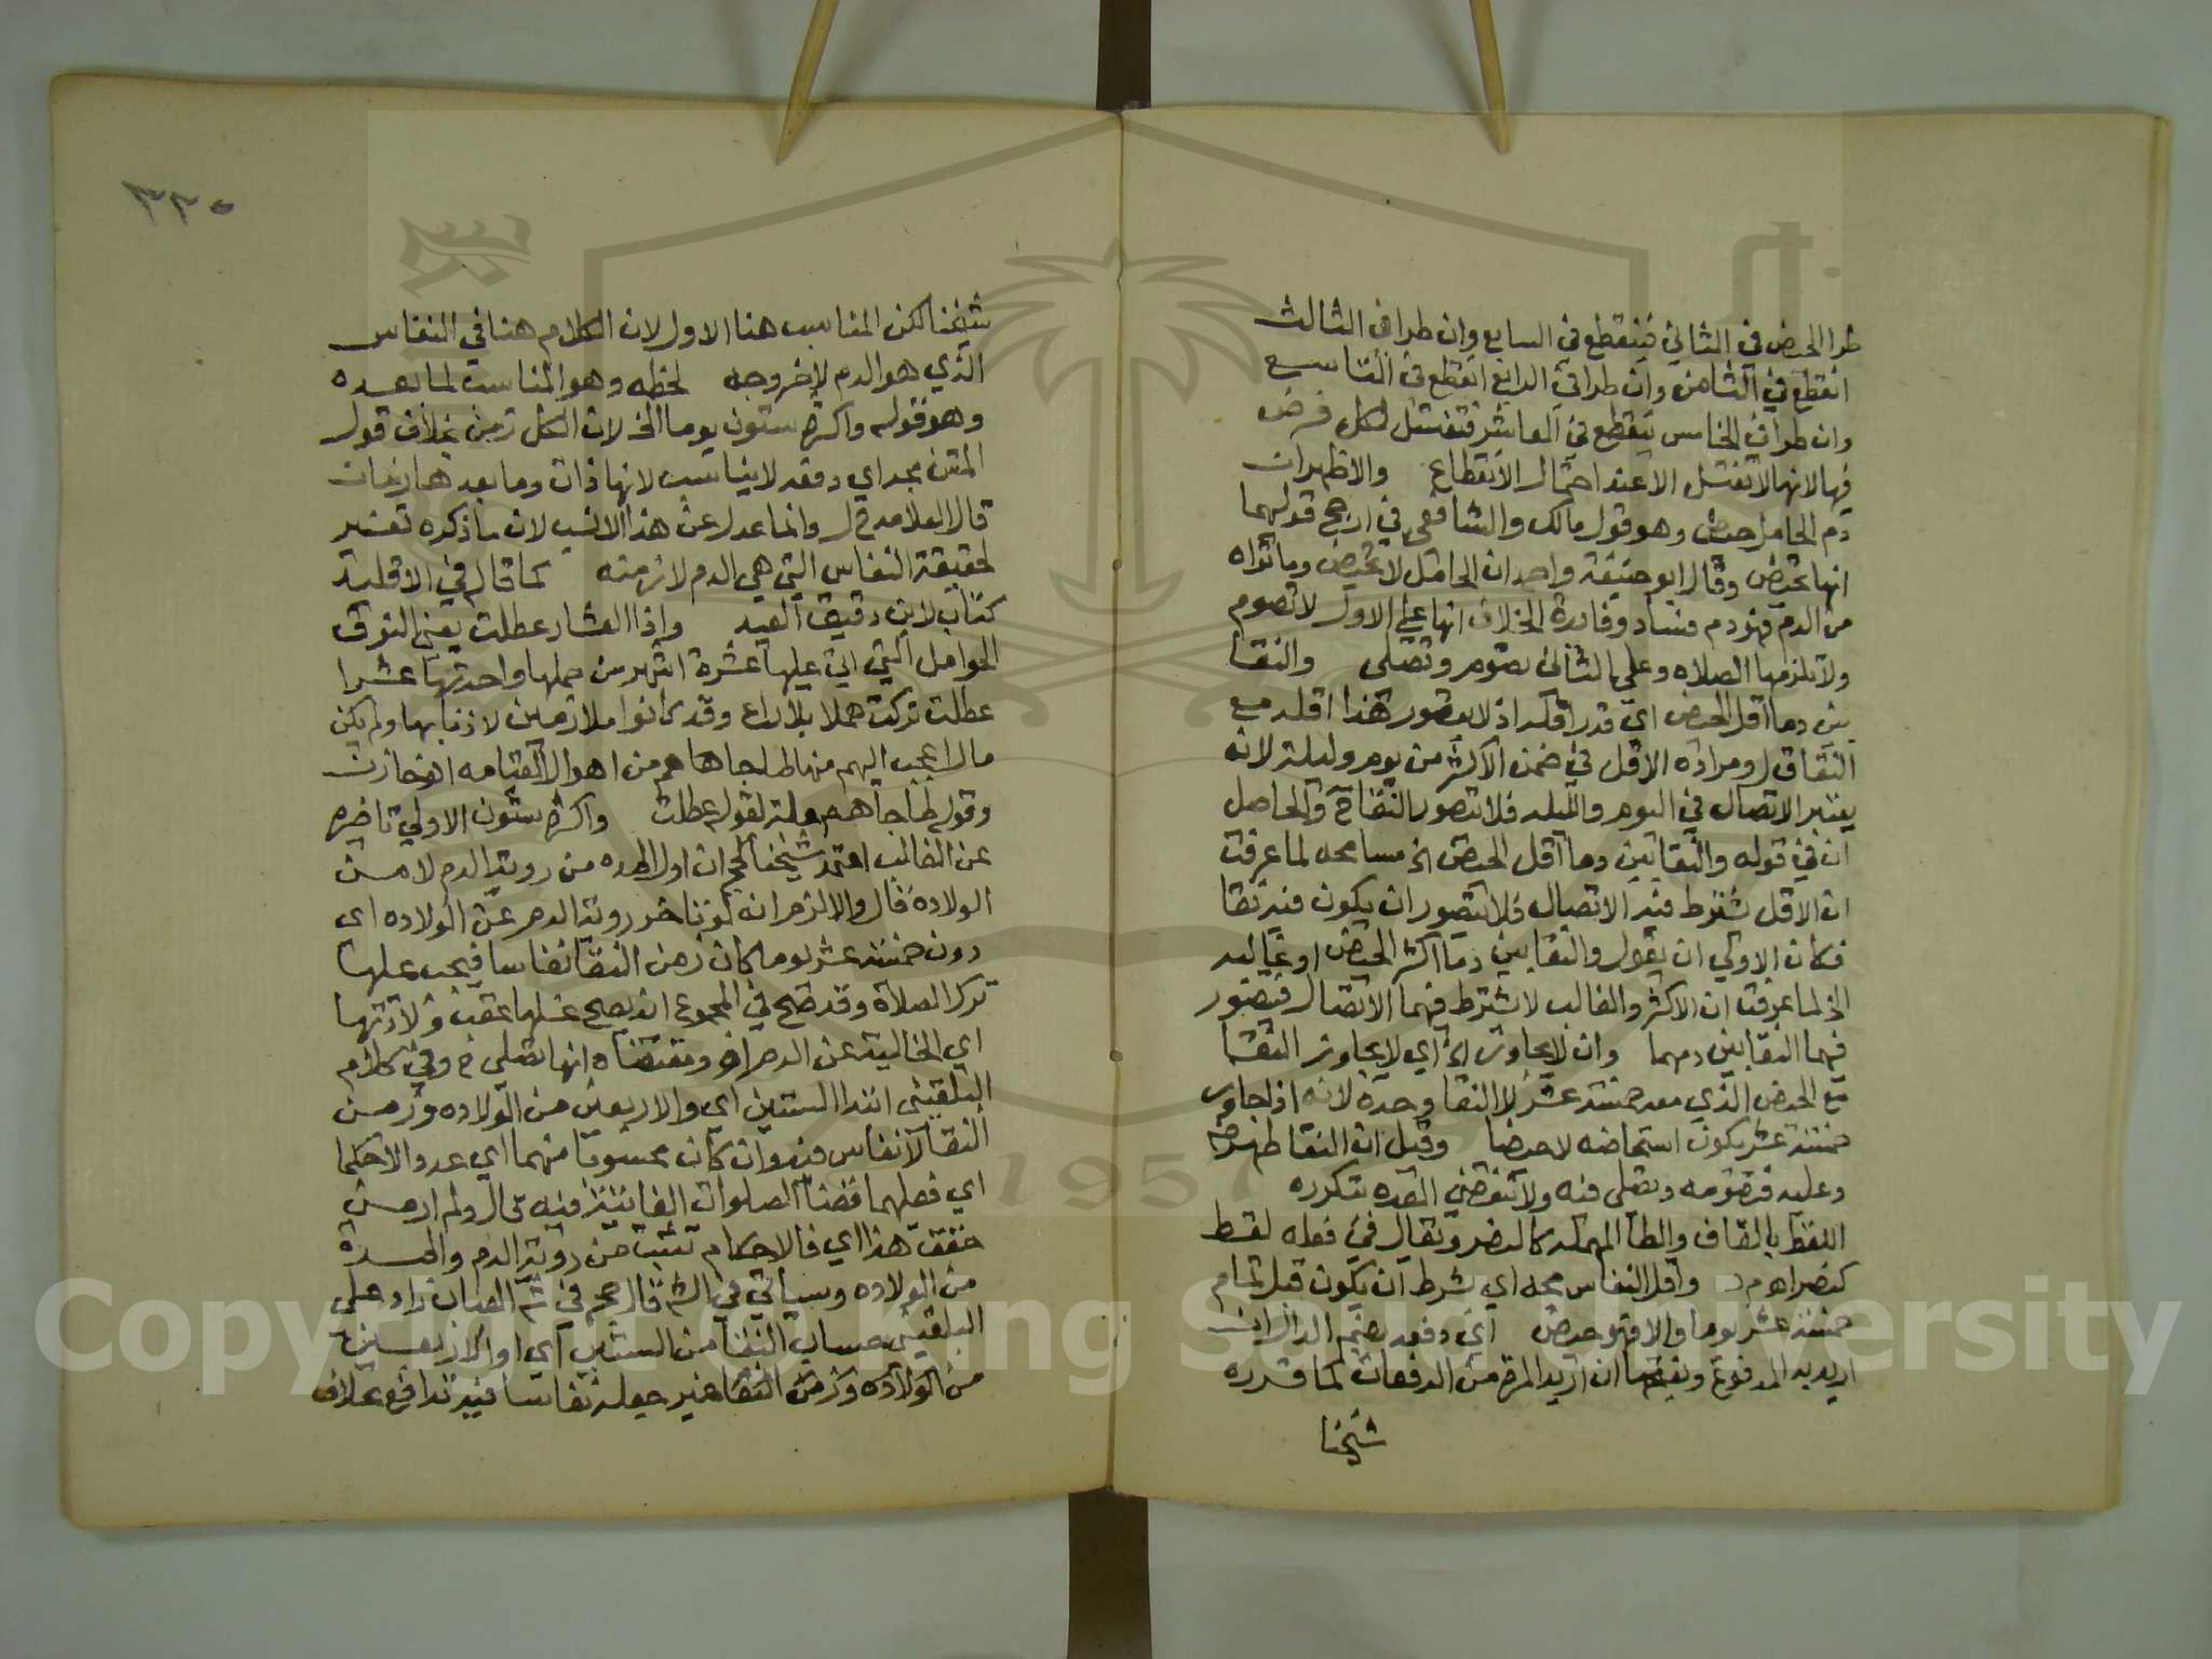 طرا الحيض في الثاني فينقطع في السابع وان طرا في الثالث
انقطع في الثامن وان طرا في الرابع انقطع في التاسع
وان طرا في الخامس ينقطع في العاشر فتغتسل لكل فرض
فيها لانها لا تغتسل الا عند احتمال الانقطاع والاظهر ان
دم الحامل حيض وهو قول مالك والشافعي في ارجح قوليهما
انها تحيض وقال ابو حنيفة واحمد ان الحامل لا تحيض وما تراه
من الدم فهو دم فساد وفائدة الخلاف انها على الاول لا تصوم
ولا تلزمها الصلاه وعلى الثاني تصوم وتصلي والنقا
بين دما اقل الحيض اي قدر اقله اذ لا يتصور هذا اقله مع
النقا ق ل ومراده الاقل في ضمن الاكثر من يوم وليلة لانه
يعتبر الاتصال في اليوم والليله فلا يتصور النقا ح والحاصل
ان في قوله والنقا بين دما اقل الحيض الخ مسامحه لما عرفت
ان الاقل يشترط فيه الاتصال فلا يتصور ان يكون فيه نقا
فكان الاولى ان يقول والنقا بين دما اكثر الحيض او غالبه
الخ لما عرفت ان الاكثر والغالب لا يشترط فيهما الاتصال فيتصور
فيهما النقا بين دمهما وان لا يجاوز الخ اي لا يجاوز النقا
مع الحيض الذي معه خمسة عشر لا النقا وحده لانه اذا جاوز
خمسة عشر يكون استحاضه لا حيضا وقيل ان النقا طهر
وعليه فتصومه وتصلي فيه ولا تنقضي العده بتكرره
اللقط بالقاف والطا المهملة كالنصر ويقال في فعله لقط
كنصر اهـ م د واقل النفاس مجه اي بشرط ان يكون قبل تمام
خمسة عشر يوما والا فهو حيض اي دفعه بضم الدال ان
اريد به المدفوع وبفتحها ان اريد المرة من الدفعات كما قرره
شيخنا
٣٣٠
شيخنا لكن المناسب هنا الاول لان الكلام هنا في النفاس
الذي هو الدم لا خروجه لحظه وهو المناسب لما بعده
وهو قوله واكثره ستون يوما الخ لان الكل زمن بخلاف قول
المتن مجه اي دفعه لا يناسب لانها ذات وما بعدها زمان
قال العلامه م ر وانما عدل عن هذا الانسب لان ما ذكره تفسير
لحقيقة النفاس التي هي الدم لا زمنه كما قال في الاقليد
كتاب لابن دقيق العيد واذا العشار عطلت يعني النوق
الحوامل التي اتى عليها عشرة اشهر من حملها واحدتها عشرا
عطلت تركت هملا بلا راع وقد كانوا ملازمين لاذنابها ولم يكن
مال اعجب اليهم منها لما جاهم من اهوال القيامه اهـ خازن
وقوله لما جاهم علة لقوله عطلت واكثره ستون الاولى تاخيره
عن الغالب اعتمد شيخنا كحج ان اول المده من روية الدم لا من
الولادة قال والا لزم انه لو تاخر روية الدم عن الولاده اي
دون خمسة عشر يوما كان زمن النقا نفاسا فيجب عليها
ترك الصلاة وقد صح في المجموع انه يصح غسلها عقب ولادتها
اي الخالية عن الدم اهـ ومقتضاه انها تصلي ح وفي كلام
البلقيني ابتدا الستين اي والاربعين من الولاده وزمن
النقا لا نفاس فيه وان كان محسوبا منهما اي عددا لا حكما
اي فعليها قضا الصلوات الفائتة فيه قال ولم ار من
حقق هذا اي فالاحكام تثبت من روية الدم والمدة
من الولاده وسياتي في الشرح قال حج في ش العباب زاد على
البلقيني حساب النقا من الستين اي او الاربعين
من الولادة وزمن النقا من غير جعله نفاسا فيه تدافع بخلاف
Copyright © King Saud University
1957